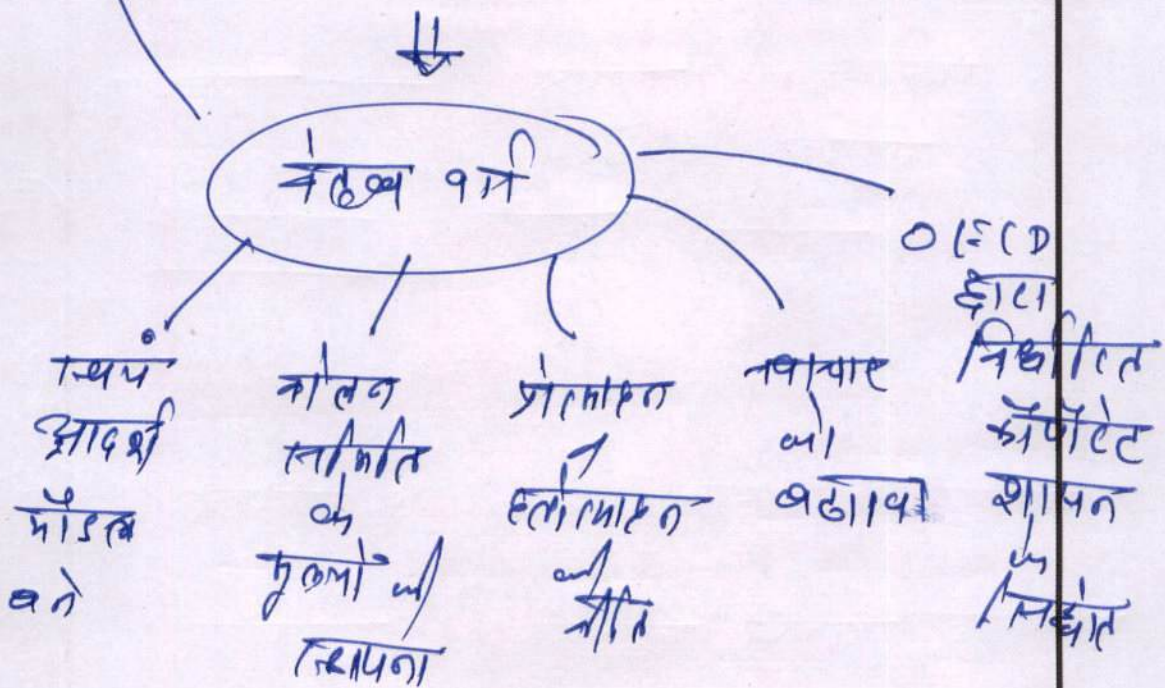 नेतृत्व वर्ग
स्वयं
आदर्श
मॉडल
बने
नोलन
समिति
के
मूल्यों की
स्थापना
प्रोत्साहन
व
हतोत्साहन
की
नीति
नवाचार
को
बढ़ावा
OECD
द्वारा
निर्धारित
कॉर्पोरेट
शासन
के
सिद्धांत